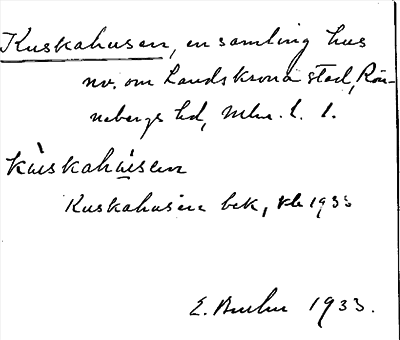 Kuskahusen, en samling hus
nv. om Landskrona stad, Rön-
nebergs hd, Mlm. l. 1.
kùskahúsen
Kuskahusen bek, 1933
E. 1933.